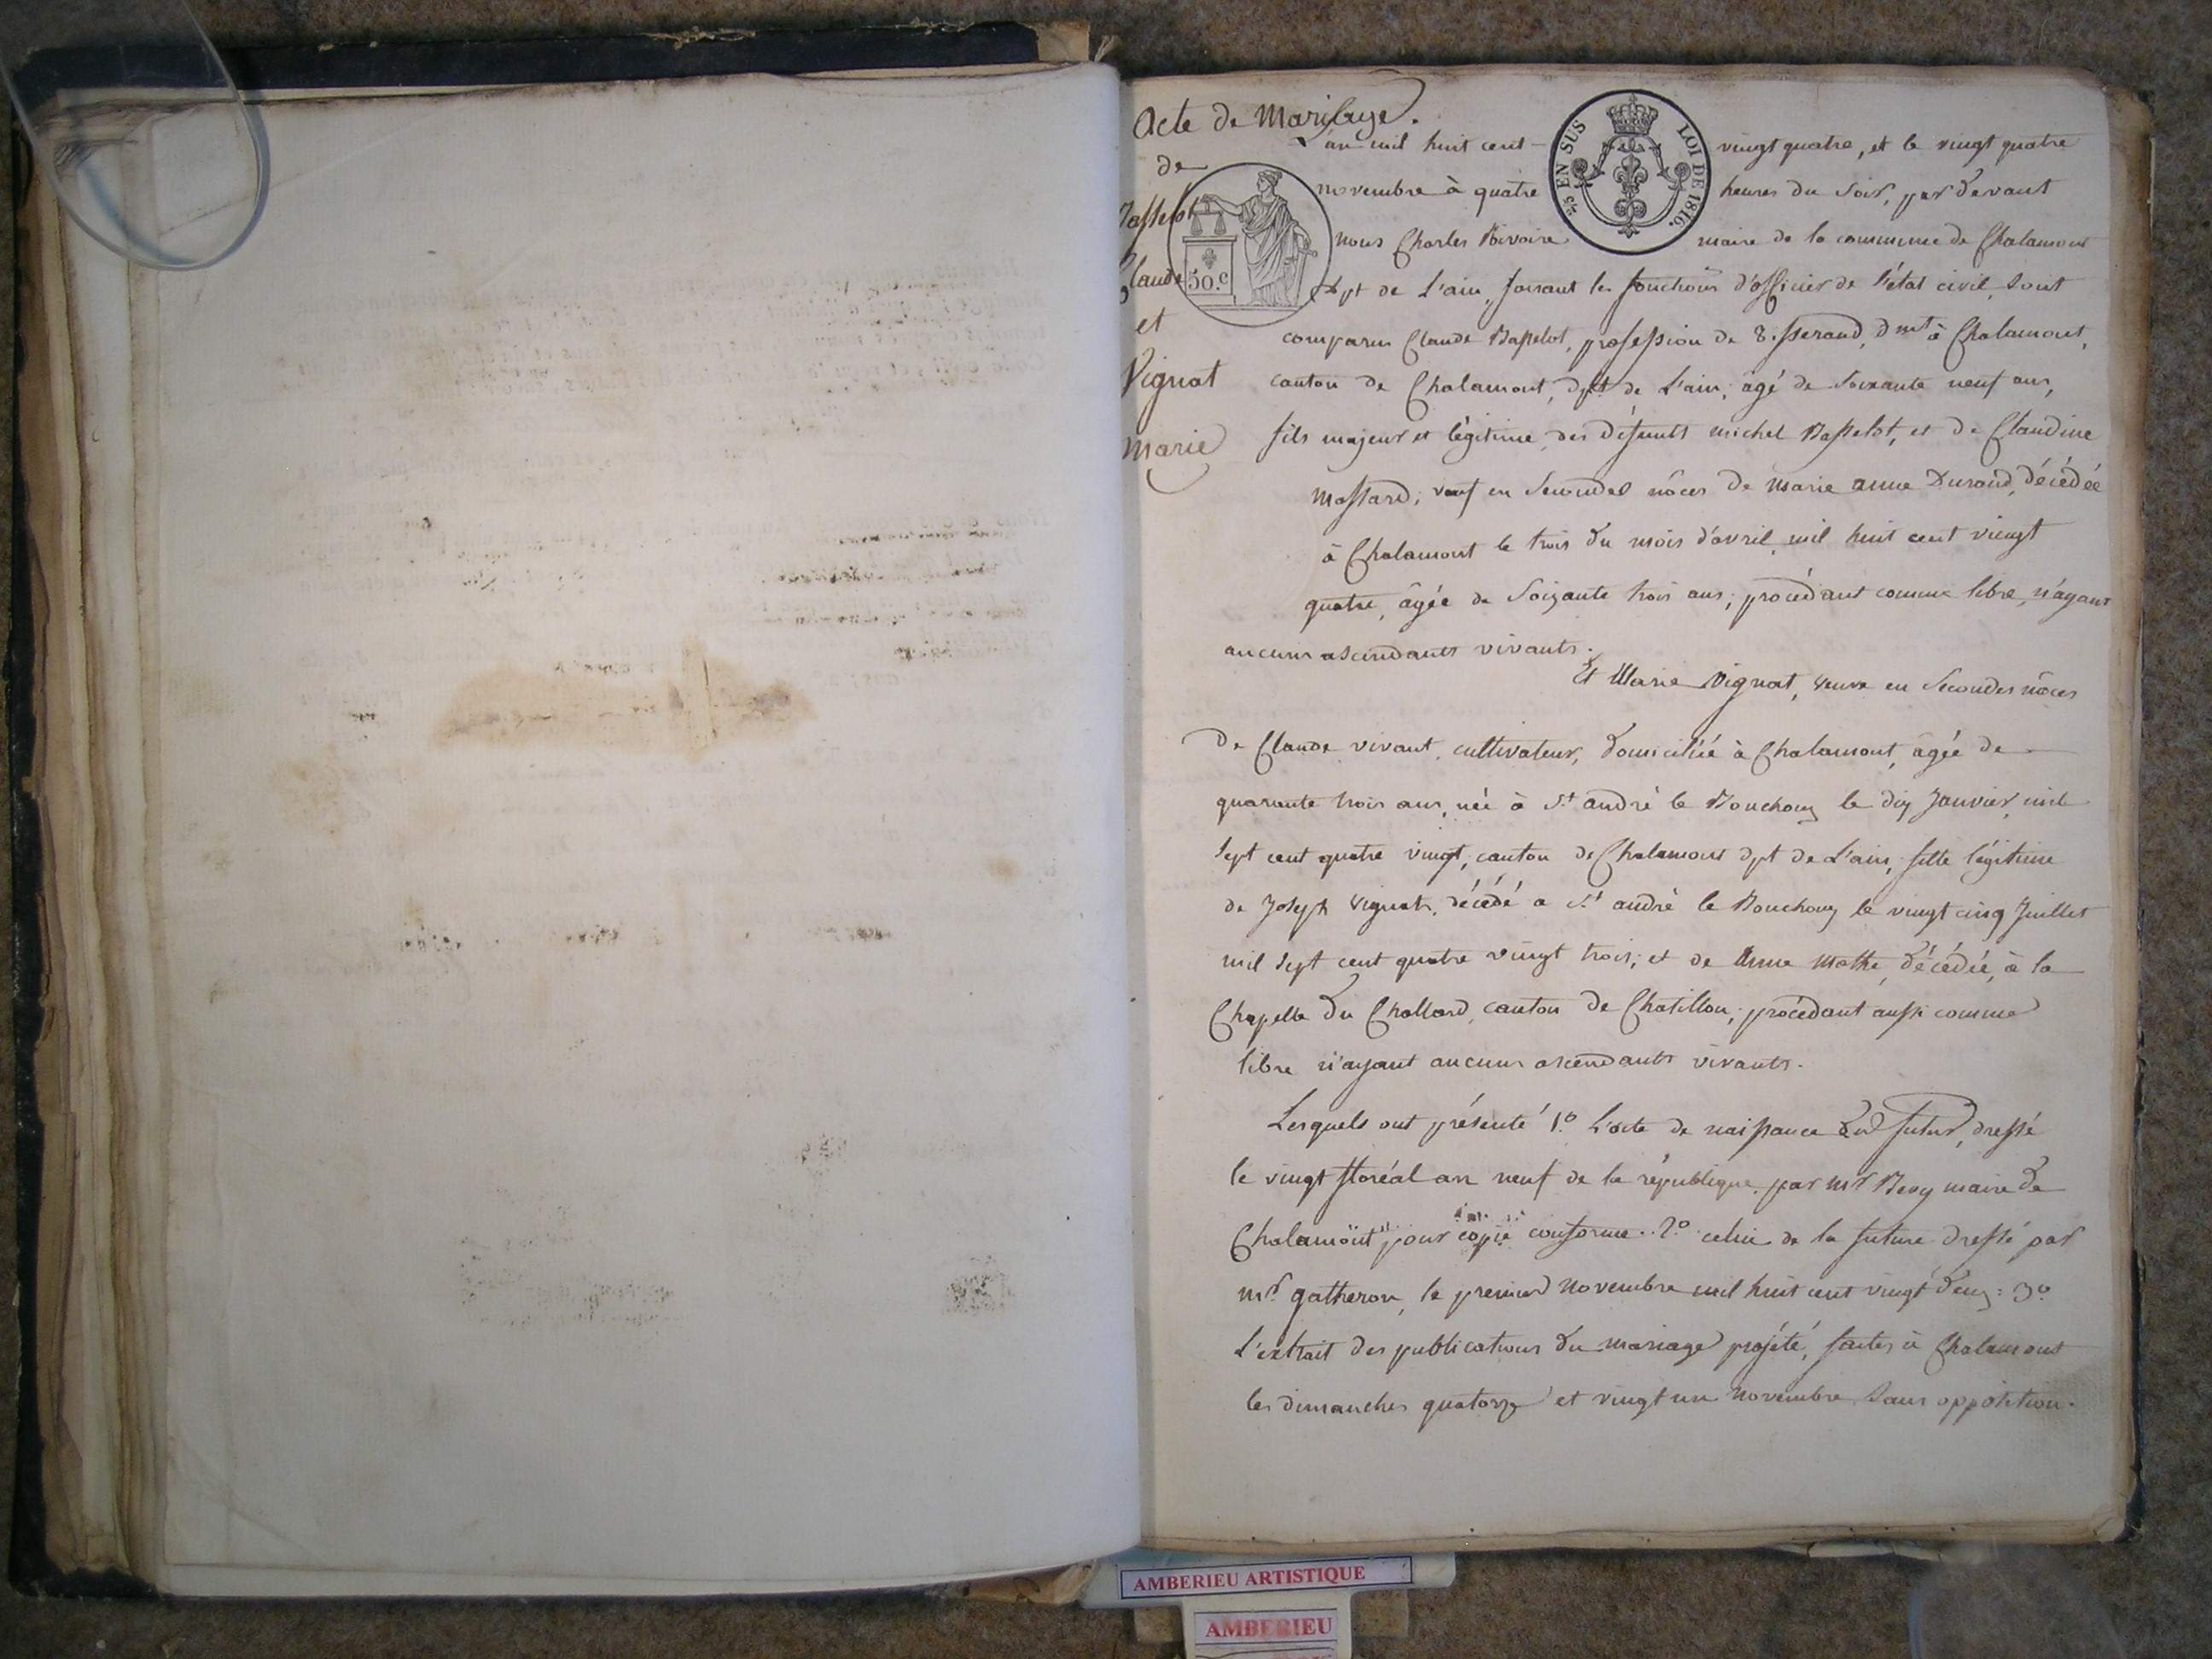 Acte de Mariage.
de
Claude
et
Vignat
Marie
L'an mil huit cent vingt quatre, et le vingt quatre
novembre à quatre heures du Soir, par devant
nous Charles maire de la commune de Chalamont
dpt de L'ain, faisant les fonctions d'officier de l'état civil, Sont
comparus Claude profession de tisserand, dmt à Chalamont,
canton de Chalamont, dpt de L'ain, âgé de Soixante neuf ans,
fils majeur et légitime des défunts michel et de Claudine
Massard; veuf en Secondes nôces de Marie anne Durand, décédée
à Chalamont le trois du mois d'avril, mil huit cent vingt
quatre, âgée de Soixante trois ans; procédant comme libre, n'ayant
aucuns ascendants vivants.
Et Marie Vignat, veuve en Secondes nôces
de Claude vivant, cultivateur, domiciliée à Chalamont, âgée de
quarante trois ans, née à St andré le Bouchoux le dix Janvier, mil
Sept cent quatre vingt, canton de Chalamont dpt de L'ain, fille légitime
de Joseph Vignat, décédé a St andré le Bouchoux le vingt cinq Juillet
mil Sept cent quatre vingt trois; et de Anne décédée, à la
Chapelle du Chatelard, canton de Chatillon; procédant aussi comme
libre n'ayant aucuns ascendants vivants.
Lesquels ont présenté 1.o L'acte de naissance du futur, dressé
le vingt floréal an neuf de la république par mr maire de
Chalamont pour copie conforme. 2.o celui de la future dressé par
mr. gatheron, le premier Novembre mil huit cent vingt deux: 3o
L'extrait des publications du mariage projeté, faites à Chalamont
les dimanches quatorze et vingt un Novembre Sans opposition.
50.c
EN SUS
LOI DE 1816.
AMBERIEU ARTISTIQUE
AMBERIEU